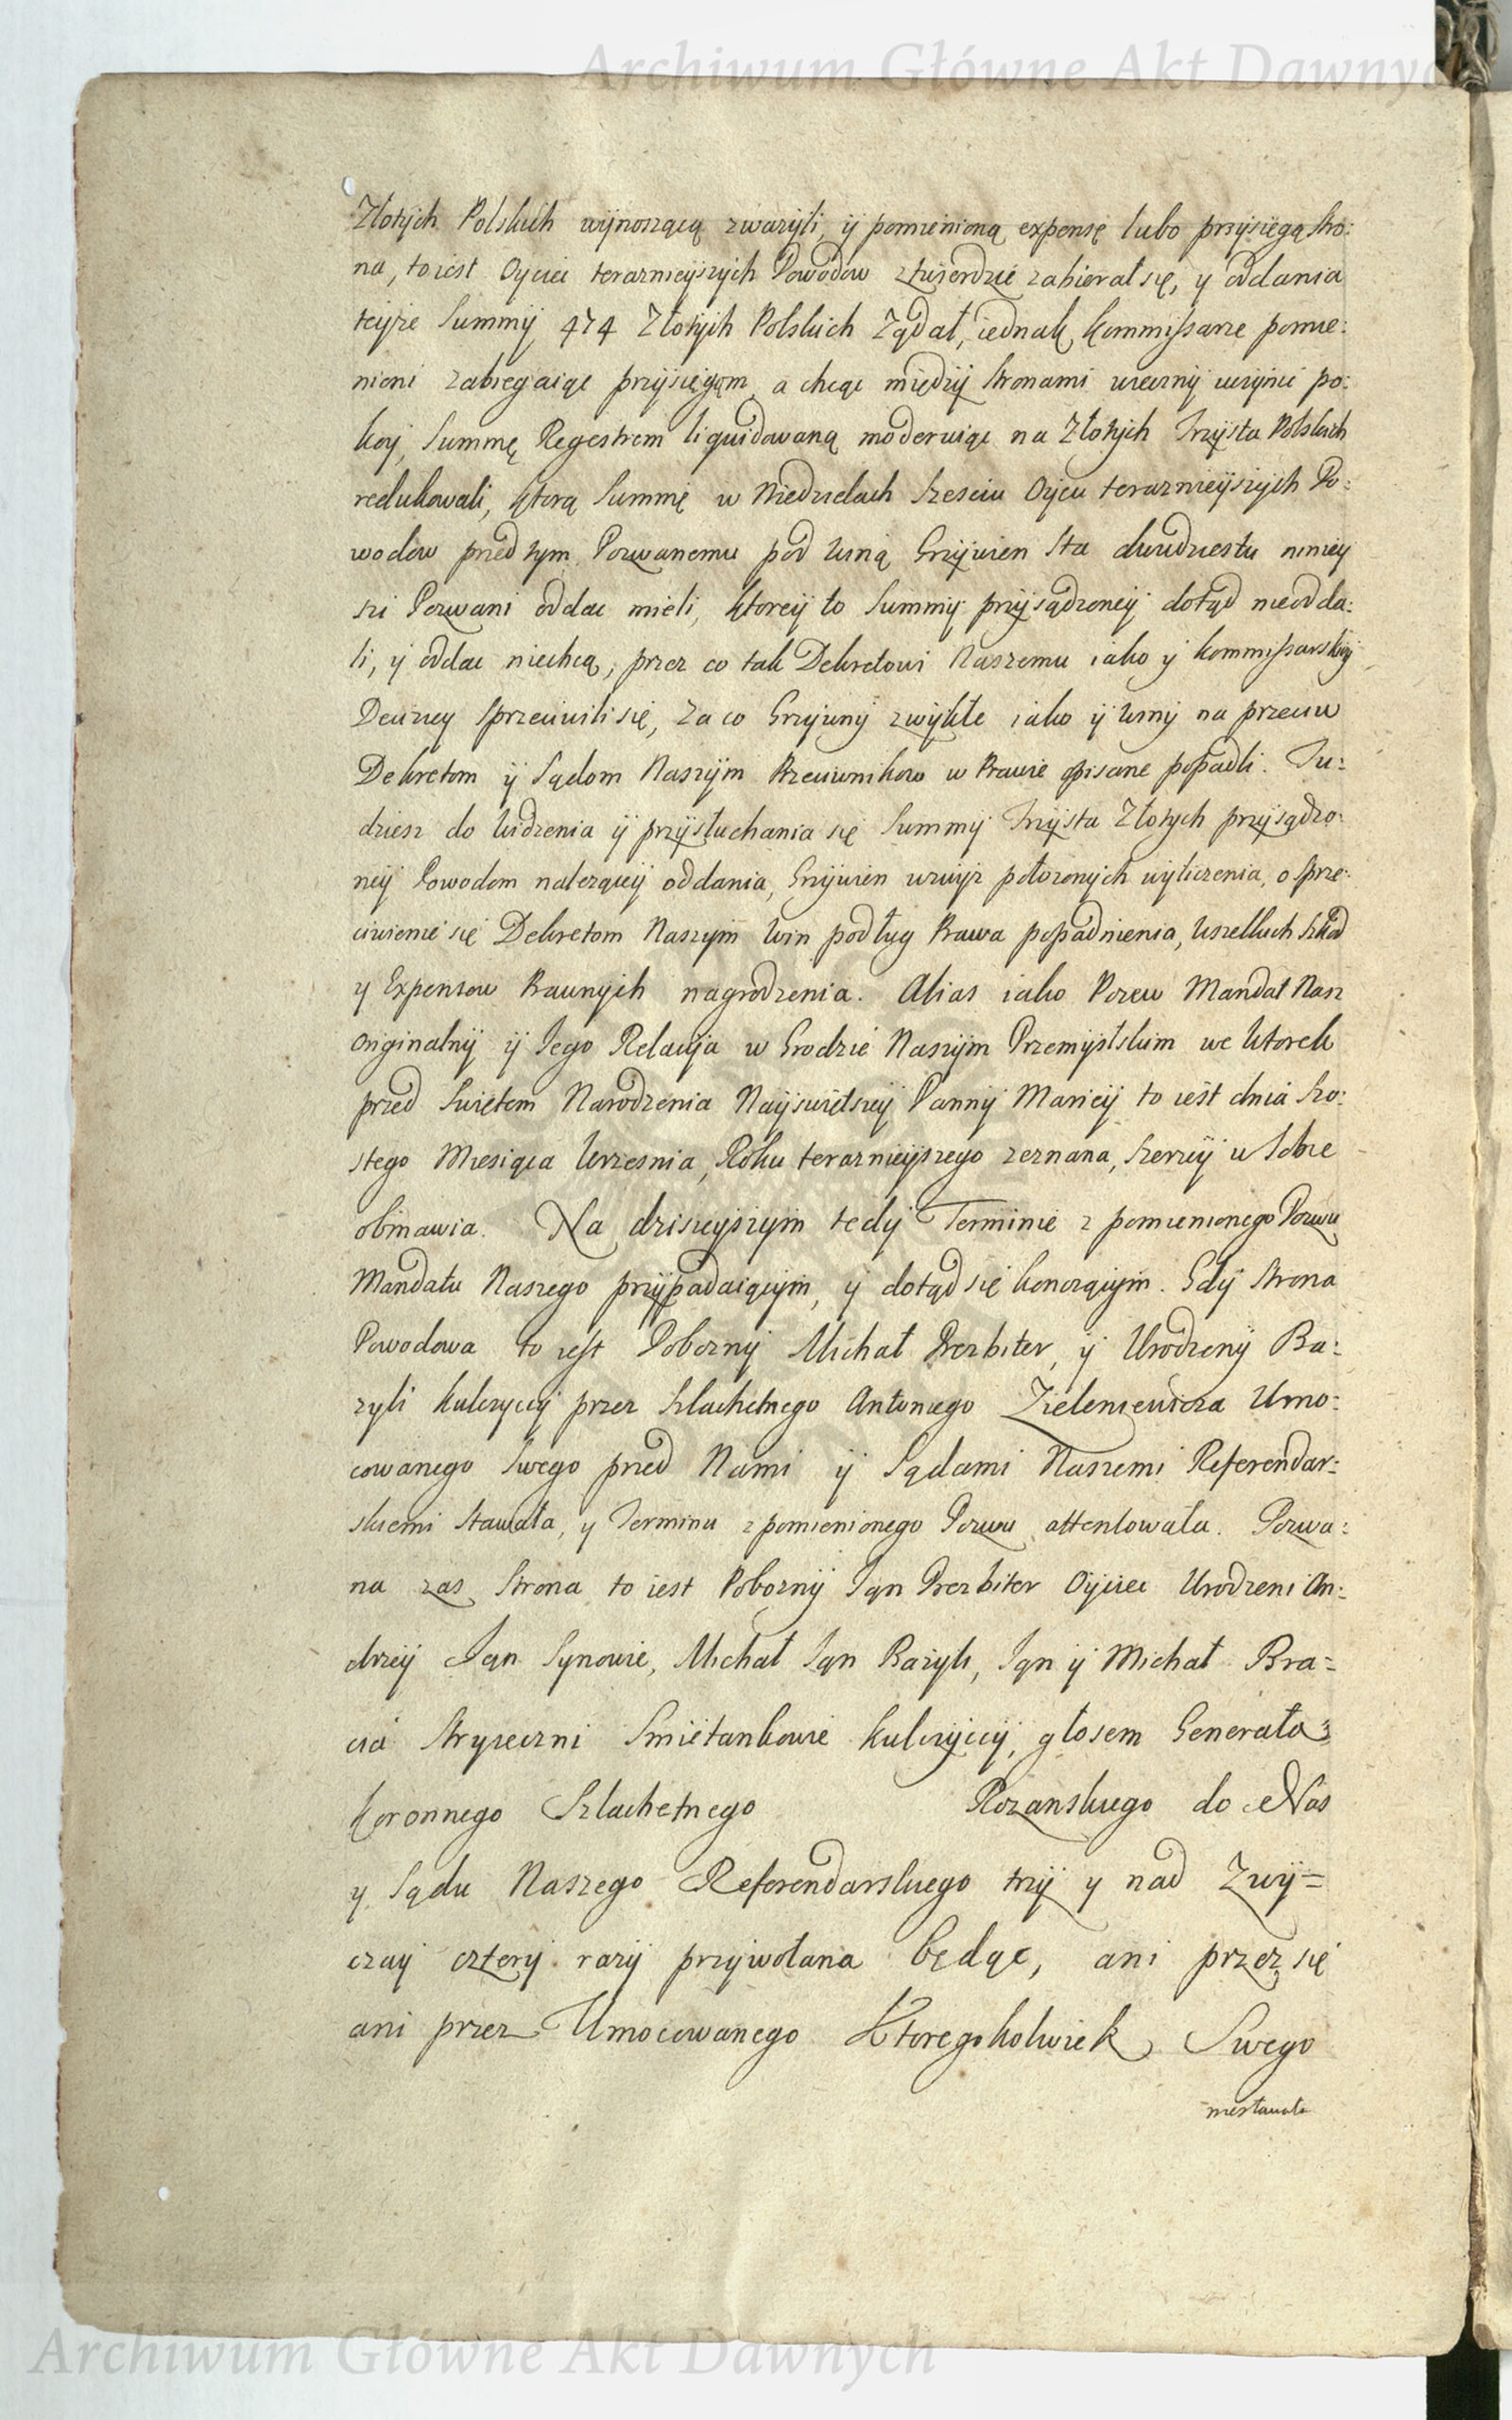 Archiwum Główne Akt Dawnych
Złotych Polskich wynoszącą zwazyli, y pomienioną expensę lubo przysięgą Stro:
na, to iest Oyciec teraznieyszych Powodow ztwierdzic zabierał się, y oddania
teyze Summy 474 Złotych Polskich Ządał, iednak Kommissarze pomie:
nieni zabiegaiąc przysięgom, a chcąc między Stronami wieczny uczynic po:
koy, Summę Regestrem liquidowaną moderuiąc na Złotych Trzysta Polskich
redukowali, ktorą Summę w Niedzielach Szesciu Oycu teraznieyszych Po:
wodow przed tym Pozwanemu pod winą Grzywien Sta dwudziestu ninie​y
si Pozwani oddac mieli, ktorey to Summy przysądzoney dotąd nieodda:
li, y oddac niechcą, przez co tak Dekretowi Naszemu iako y Kommissarskiey
Decizyey Sprzeciwili się, za co Grzywny zwykłe iako y winy na przeciw
Dekretom y Sądom Naszym Przeciwnikow w Prawie opisane popadli. Tu:
dziesz do widzenia y przysłuchania się Summy Trzysta Złotych przysądzo:
ney Powodom nalezącey oddania, Grzywien wzwyz połozonych wyliczenia, o Sprze:
ciwienie się Dekretom Naszym win podług Prawa popadnienia, wszelkich Szkod
y Expensow Prawnych nagrodzenia. Alias iako Pozew Mandat Nasz
Originalny y Jego Relacya w Grodzie Naszym Przemyslskim we Wtorek
przed Swiętem Narodzenia Nayswiętszey Panny Maryey to iest dnia Szo:
stego Miesiąca Wrzesnia, Roku teraznieyszego zeznana, Szerzey w Sobie
obmawia. Na dzisieyszym tedy Terminie z pomienionego Pozwu
Mandatu Naszego przypadaiącym, y dotąd się konczącym. Gdy Strona
Powodowa to iest Pobozny Michał Prezbiter, y Urodzony Ba:
zyli Kulczyccy przez Szlachetnego Antoniego Zieleniewicza Umo:
cowanego Swego przed Nami y Sądami Naszemi Referendar:
skiemi Stawała, y Terminu z pomienionego Pozwu attentowała. Pozwa:
na zas Strona to iest Pobozny Jan Prezbiter Oyciec Urodzeni An:
drzey Jan Synowie, Michał Jan Bazyli, Jan y Michał Bra=
cia Stryieczni Smietankowie Kulczyccy, głosem Generała
Koronnego Szlachetnego Rozanskiego do Nas
y Sądu Naszego Referendarskiego trzy y nad Zwy=
czay cztery razy przywołana będąc, ani przez się
ani przez Umocowanego Ktoregokolwiek Swego
niestawała
Archiwum Główne Akt Dawnych